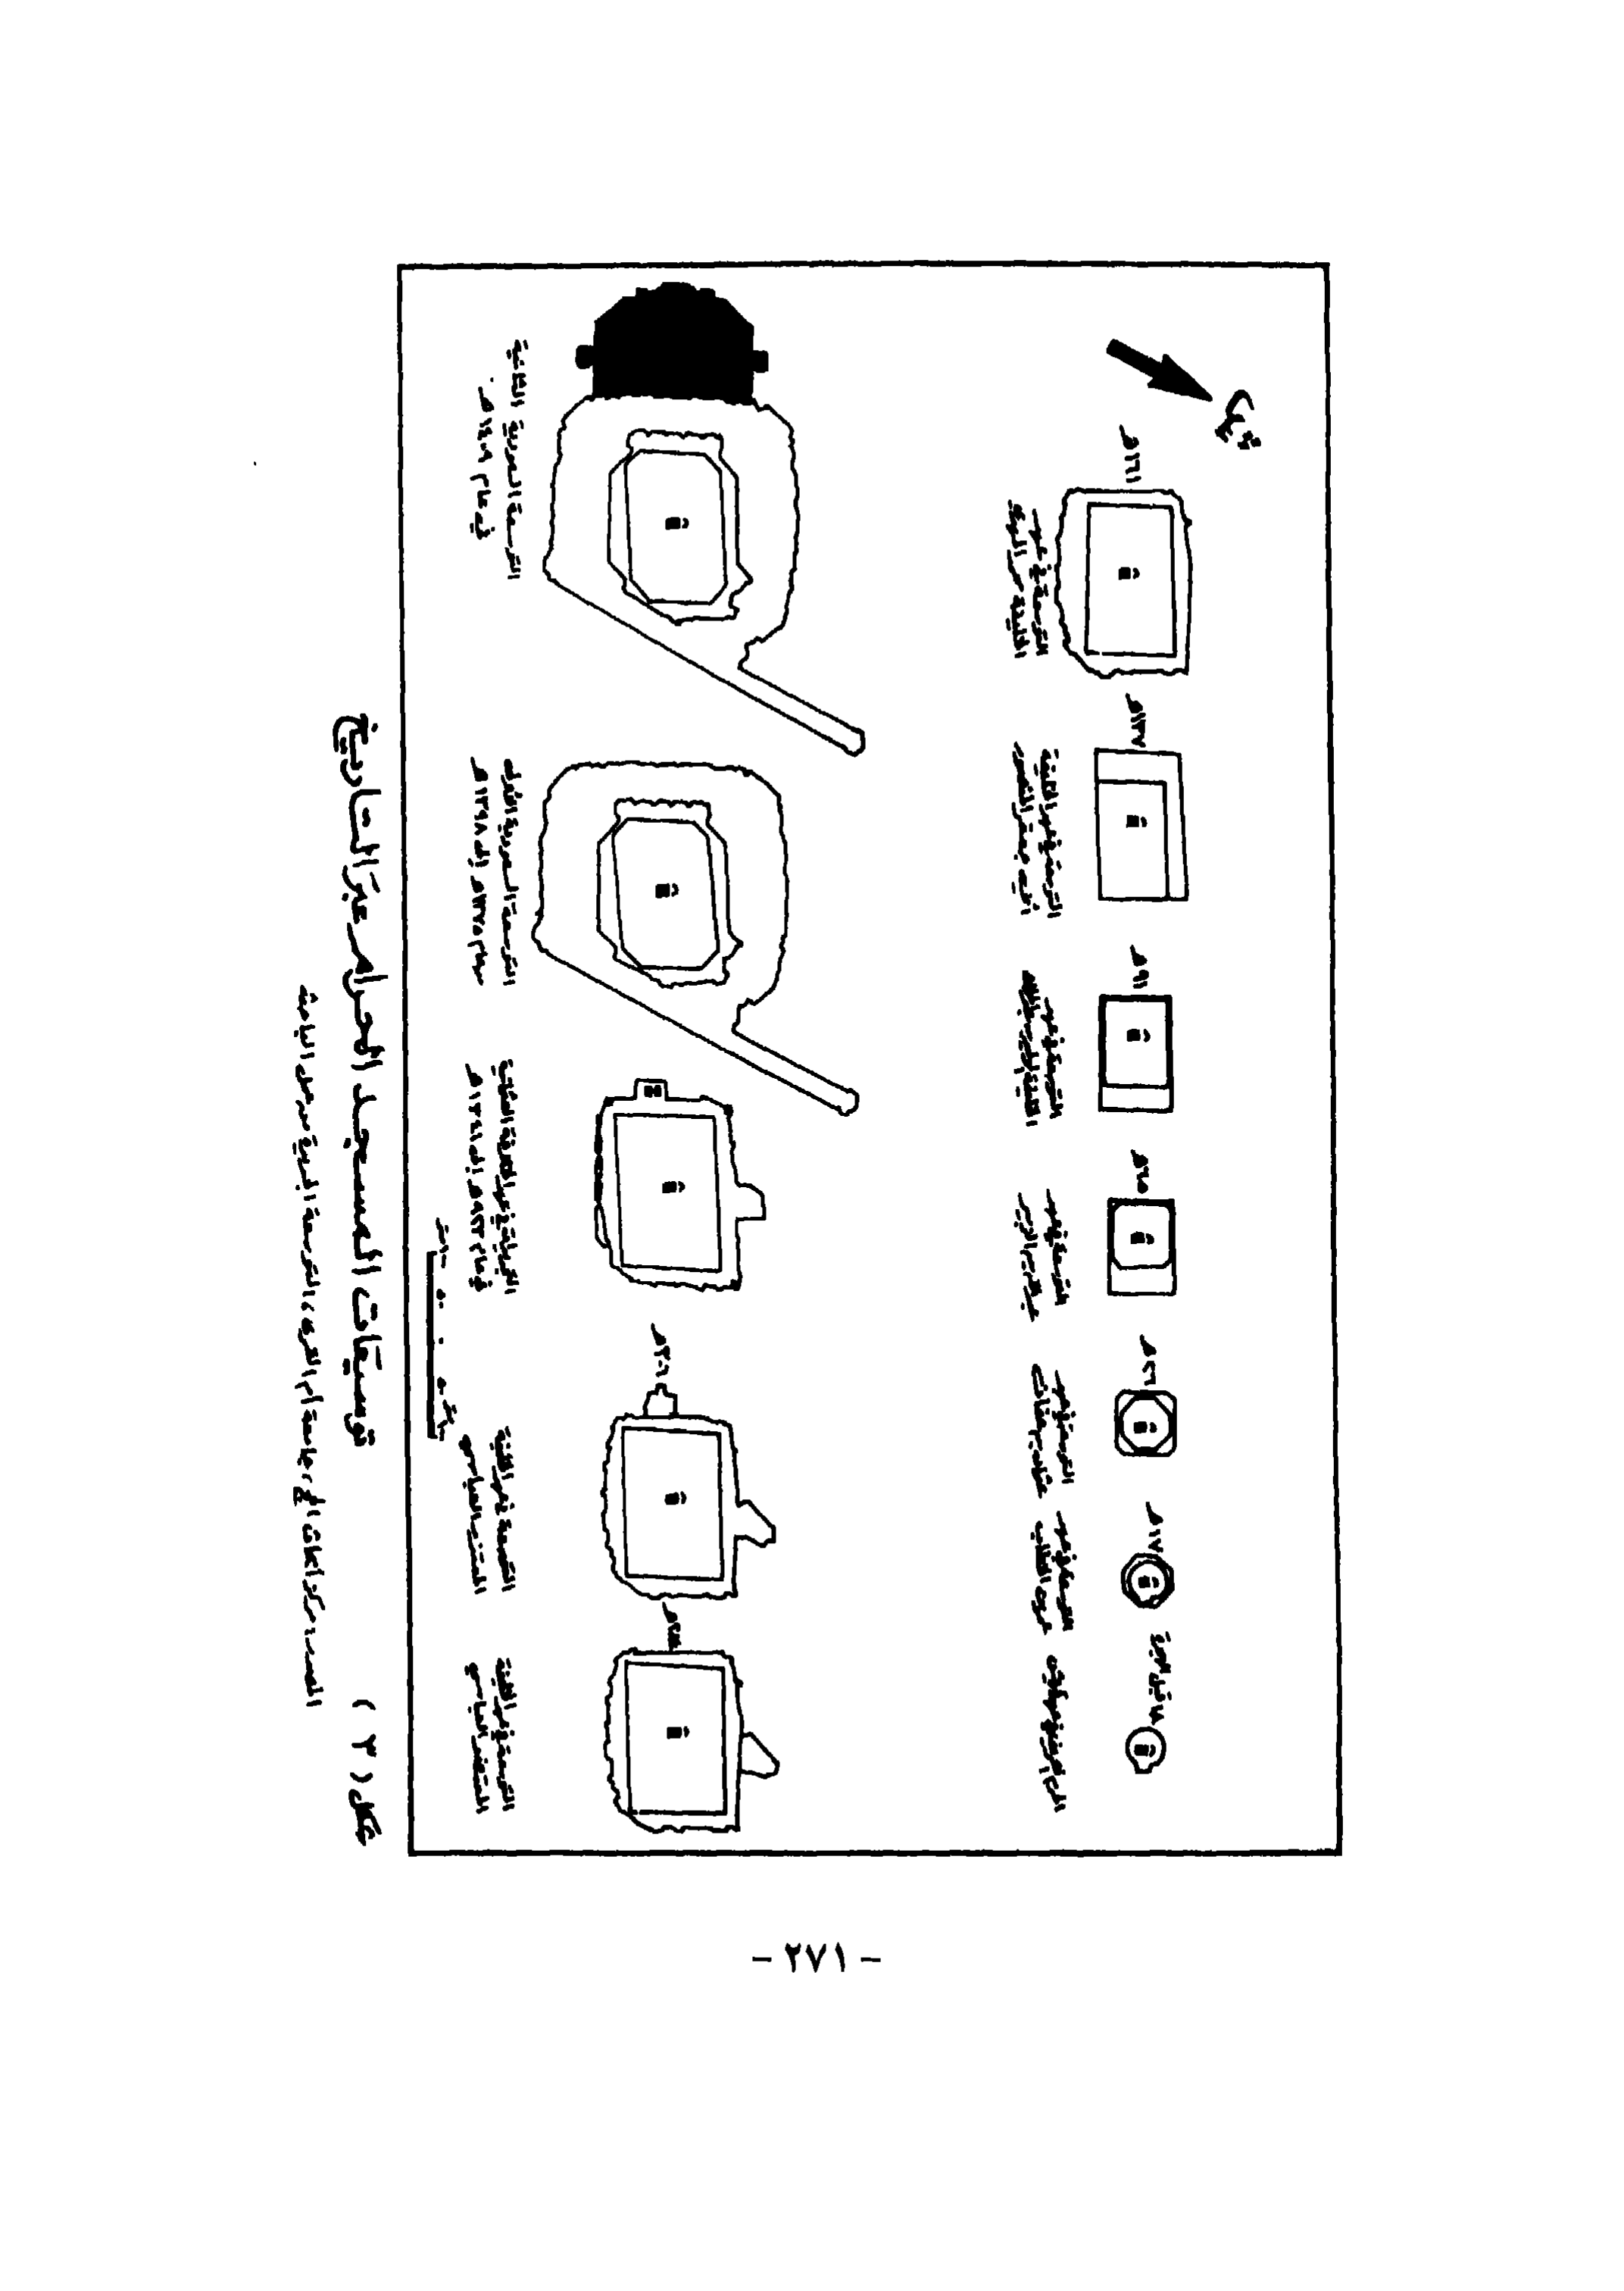 شمال
قبل الهجرة
١٧هـ
٢٦هـ
٦٥هـ
٩١هـ
١٣٧هـ
١٦١هـ
التوسعة في عهد
عمر بن الخطاب
التوسعة في عهد
عثمان بن عفان
التوسعة في عهد
عبد الله بن الزبير
التوسعة في عهد
التوسعة في عهد الخليفة
أبي جعفر المنصور
التوسعة في عهد
الخليفة المهدي
٣٠٦هـ
التوسعة في عهد الخليفة
المعتضد العباسي
التوسعة في عهد الخليفة
المقتدر العباسي
في عام
التوسعة السعودية الأولى
من عام ١٣٧٥هـ إلى ١٣٩٨هـ
التوسعة السعودية الثانية
في عام ١٤٠٩هـ
شكل ( ٣ ) توسيعات المسجد الحرام عبر التاريخ
المصدر: مركز أبحاث الحج، جامعة أم القرى، التوسعة الجديدة من عمل الباحث
- ٢٧١ -